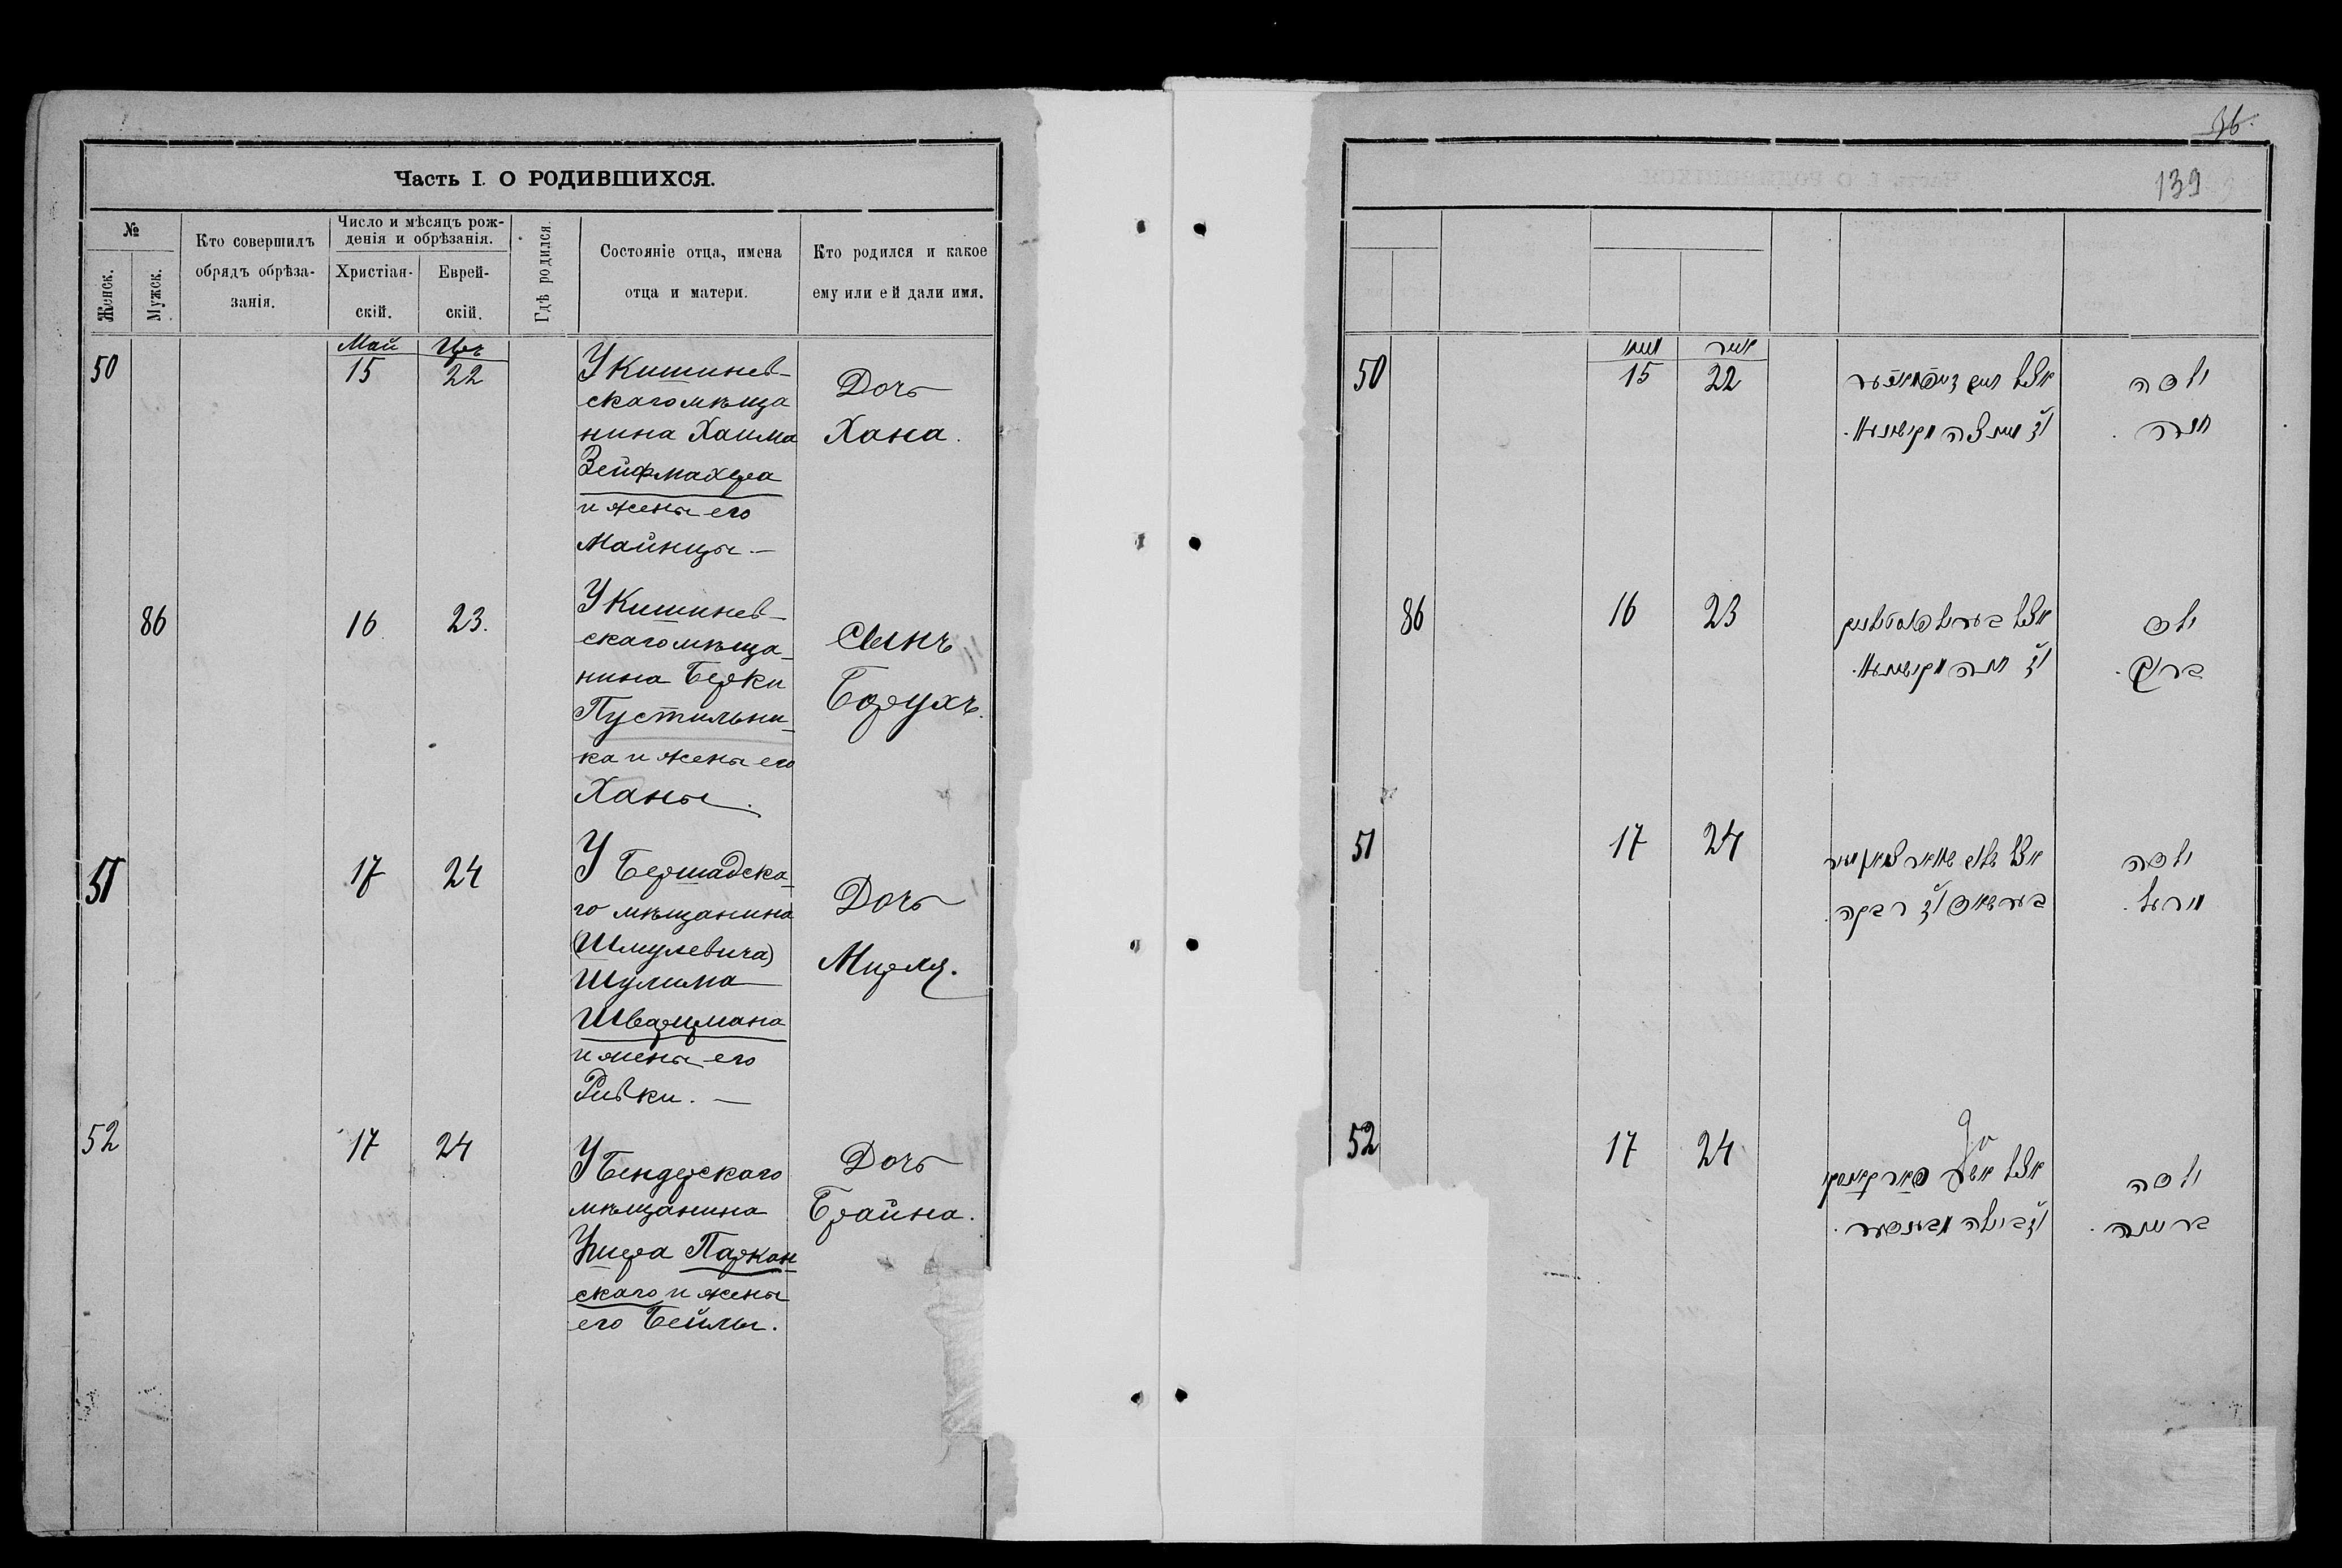 Часть I. О РОДИВШИХСЯ.
№
Женск.
Мужск.
Кто совершилъ
обрядъ обрѣза-
занія.
Число и мѣсяцъ рож-
денія и обрѣзанія.
Христіан-
скій.
Еврей-
скій.
Гдѣ родился.
Состояніе отца, имена
отца и матери.
Кто родился и какое
ему или ей дали имя.
Май
Иръ
50
15
22
У Кишинев-
скаго мѣща
нина Хаима
Зейфмахера
и жены его
Майнцы. —
Дочь
Хана.
86
16
23.
У Кишинев-
скаго мѣща-
нина Берки
Пустильни-
ка и жены его
Ханы.
Сынъ
Борухъ.
51
17
24
У Бершадска-
го мѣщанина
(Шмулевича)
Шулима
Шварцмана
и жены его
Ривки. —
Дочь
Мирля.
52
17
24
У Бендерскаго
мѣщанина
Ушера Паркан-
скаго и жены
его Бейлы.
Дочь
Брайна.
36.
139
מאי
אייר
50
15
22
ילדה
חנה.
86
16
23
ילד
ברוך.
51
17
24
ילדה
מירל.
52
17
24
ילדה
בריינה.